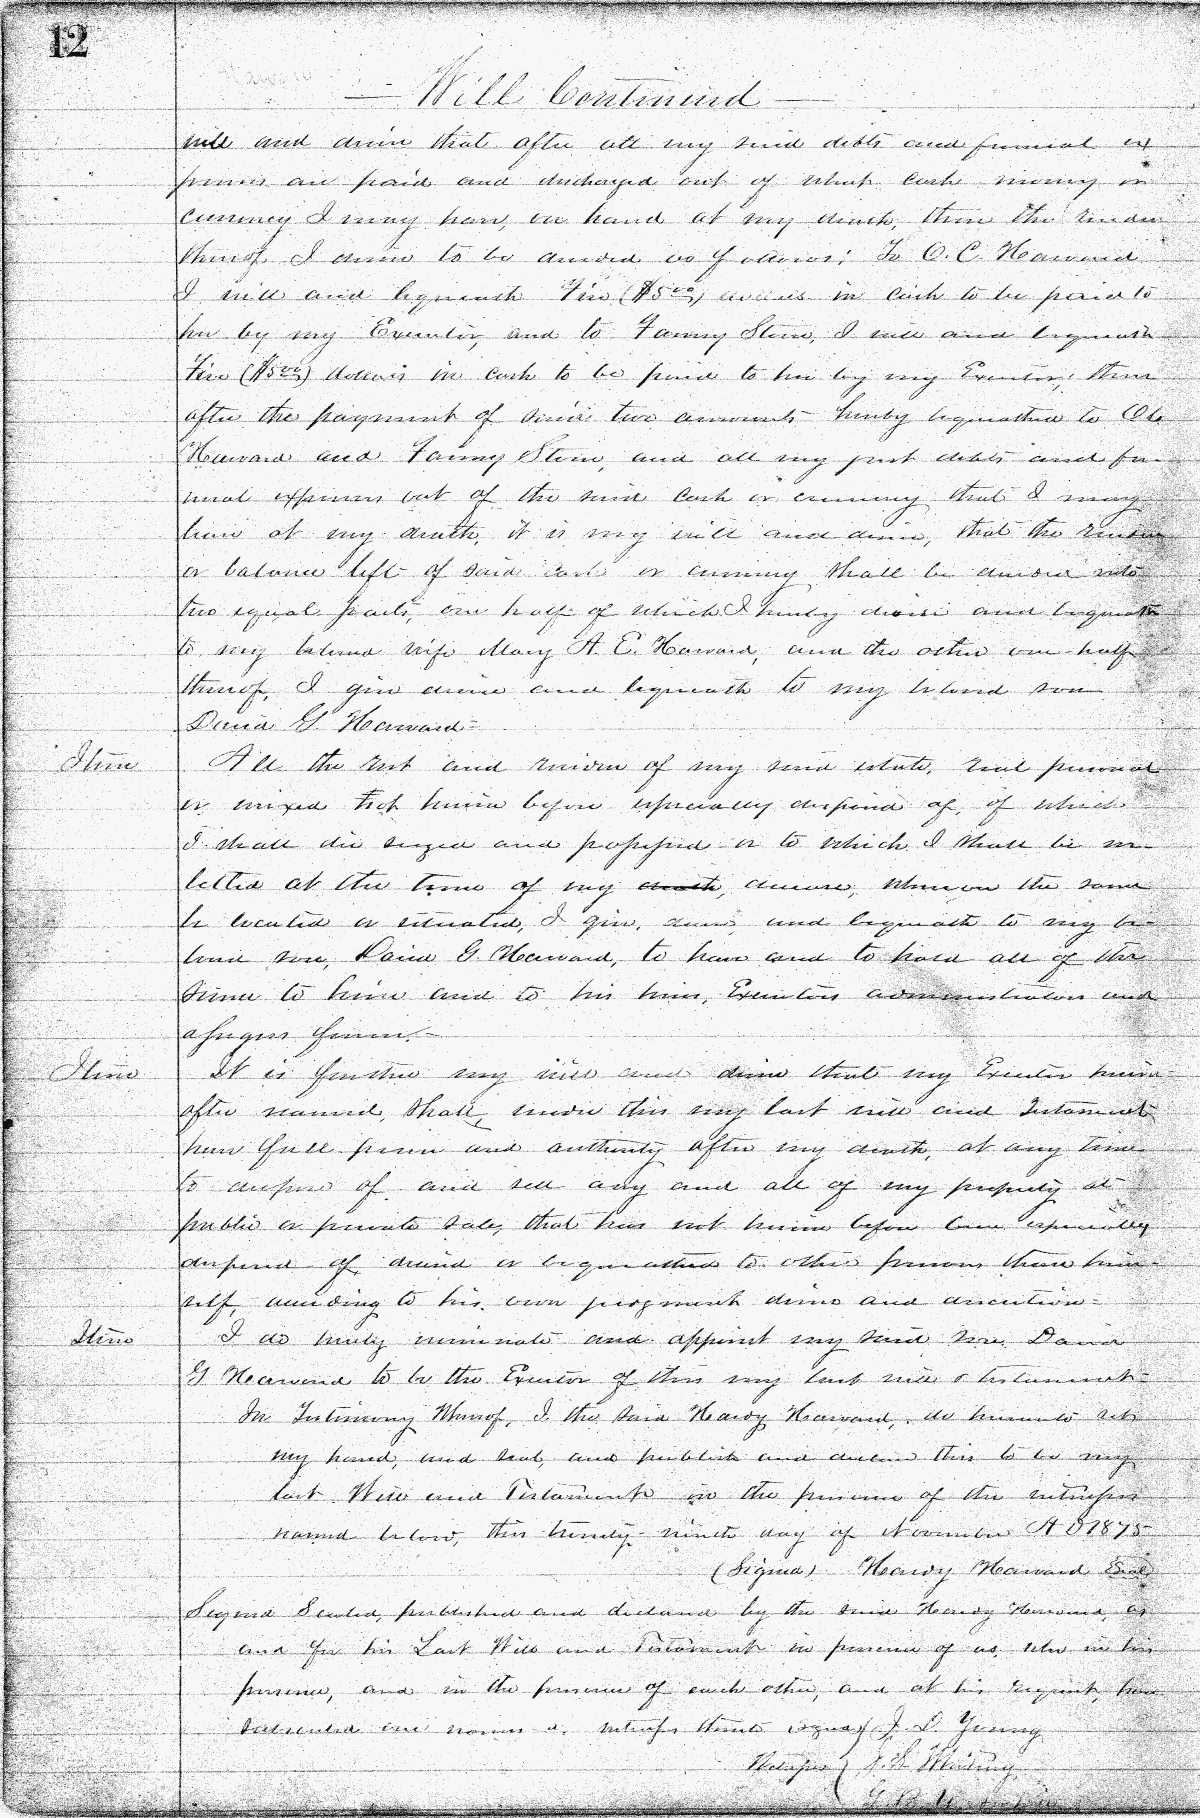 12
— Will Continued —
will and desire that after all my said debts and funeral ex
penses are paid and discharged out of what cash money or
currency I may have on hand at my death, then the residue
thereof I desire to be divided as follows; To O. C. Harward
I will and bequeath Five ($5.00) dollars in cash to be paid to
her by my Executor, and to Fanny Stone, I will and bequeath
Five ($5.00) dollars in cash to be paid to her by my Executor; then
after the payment of said two amounts hereby bequeathed to
Harward and Fanny Stone, and all my just debts and fu-
neral expenses out of the said cash or currency that I may
have at my death, it is my will and desire, that the residue
or balance left of said cash or currency shall be divided into
two equal parts, one half of which I hereby devise and bequeath
to my beloved wife Mary A. E. Harward, and the other one half
thereof, I give devise and bequeath to my beloved son
David G. Harward-
Item All the rest and residue of my said estate, real personal
or mixed not herein before especially disposed of, of which
I shall die seized and possessed or to which I shall be en-
titled at the time of my death, decease, wherever the same
be located or situated, I give, devise, and bequeath to my be-
loved son, David G. Harward, to have and to hold all of the
same to him and to his heirs, Executors administrators and
assigns forever.-
Item It is further my will and desire that my Executor herein
after named, shall, under this my last will and Testament
have full power and authority after my death, at any time
to dispose of and sell any and all of my property at
public or private sale, that has not herein before been especially
disposed of, devised or bequeathed to other persons than him-
self, according to his own judgment desire and discretion-
Item I do hereby nominate and appoint my said son David
G Harward to be the Executor of this my last will & testament-
In Testimony Whereof, I the said Hardy Harward, do hereunto set
my hand, and seal, and publish and declare this to be my
last Will and Testament in the presence of the witnesses
named below, this twenty ninth day of November A D 1875
(Signed) Hardy Harward Seal
Signed Sealed, published and declared by the said Hardy Harward, as
and for his Last Will and Testament in presence of us, who in his
presence, and in the presence of each other, and at his request, have
subscribed our names as witnesses thereto signed J. D. Young
Witnesses J. W Whiting